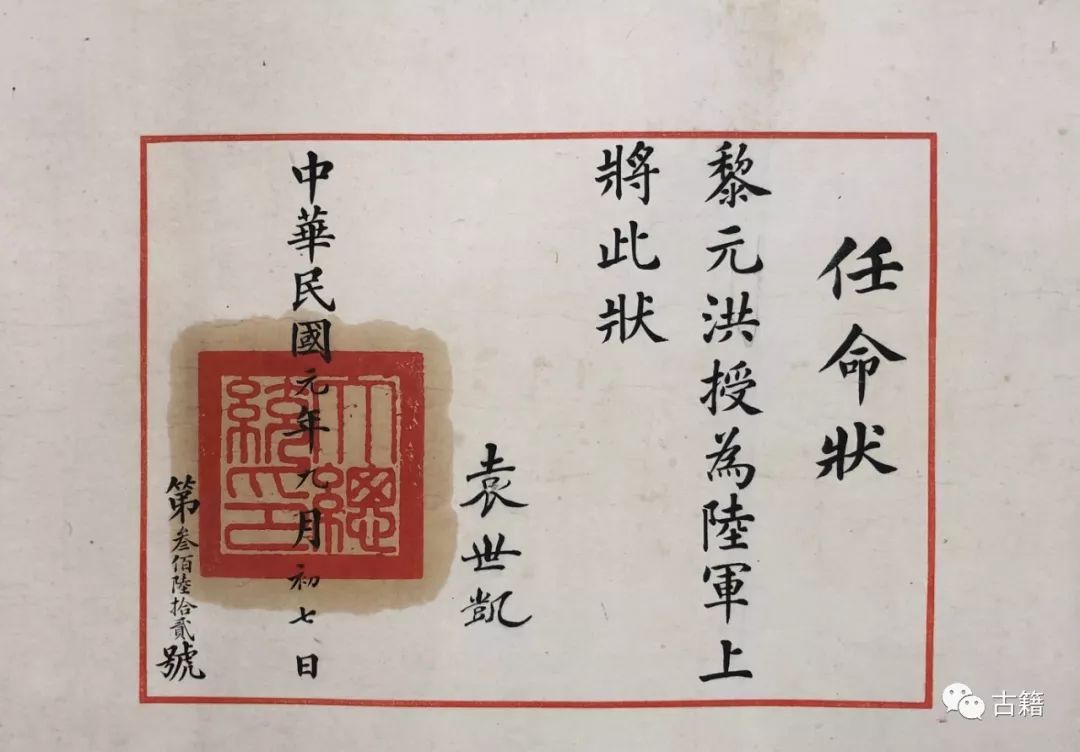 任命狀
黎元洪授為陸軍上
將此狀
袁世凱
中華民國元年九月初七日
大總統印
第叁佰陸拾貳號
古籍